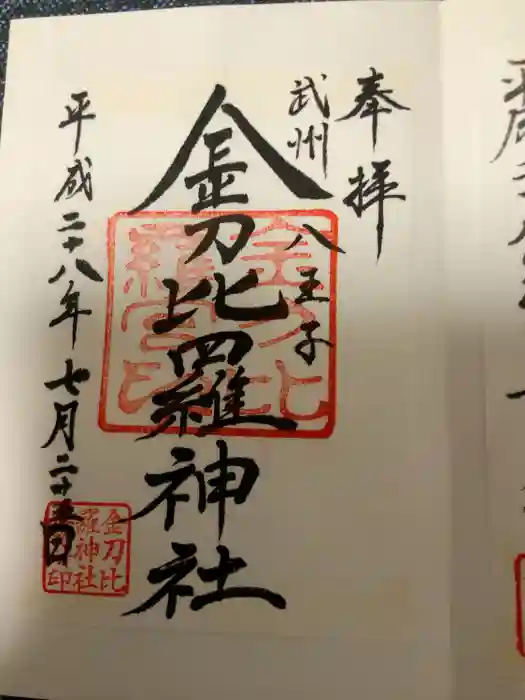 奉拝
武州
八王子
金刀比羅神社
平成二十八年七月二十五日
金刀比
羅宮印
金刀比
羅神社
印